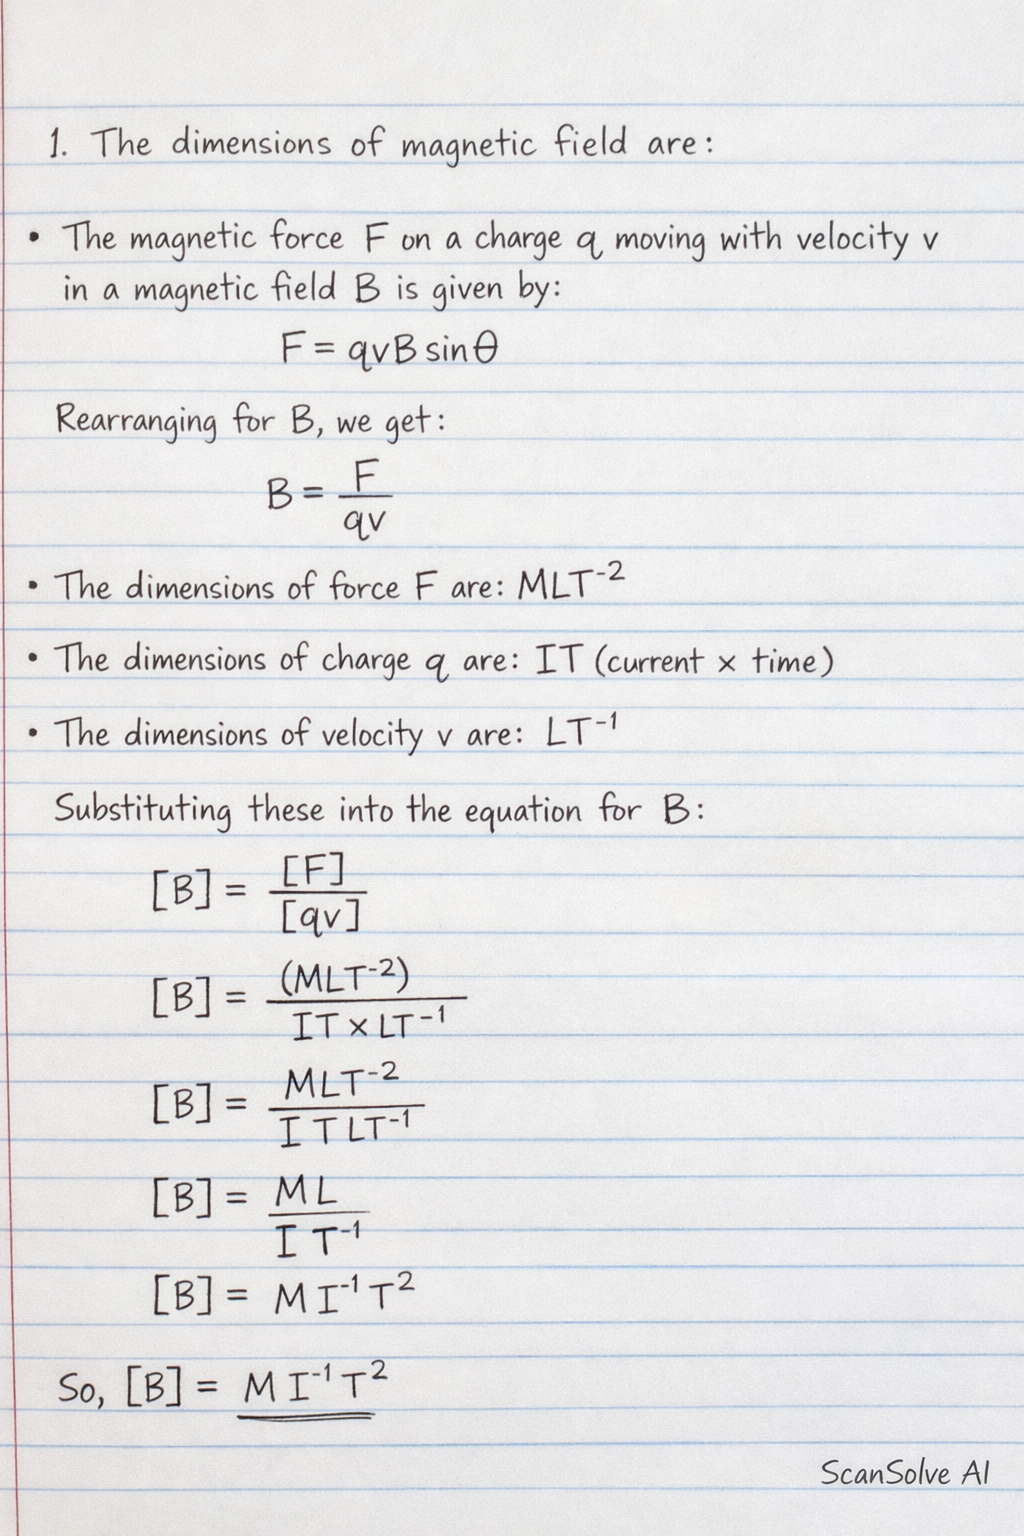 1. The dimensions of magnetic field are:
• The magnetic force F on a charge q moving with velocity v
in a magnetic field B is given by:
F = qvB sinθ
Rearranging for B, we get:
B = F/qv
• The dimensions of force F are: MLT⁻²
• The dimensions of charge q are: IT (current × time)
• The dimensions of velocity v are: LT⁻¹
Substituting these into the equation for B:
[B] = [F]/[qv]
[B] = (MLT⁻²)/IT × LT⁻¹
[B] = MLT⁻²/I T LT⁻¹
[B] = ML/I T⁻¹
[B] = M I⁻¹ T²
So, [B] = M I⁻¹ T²
ScanSolve AI